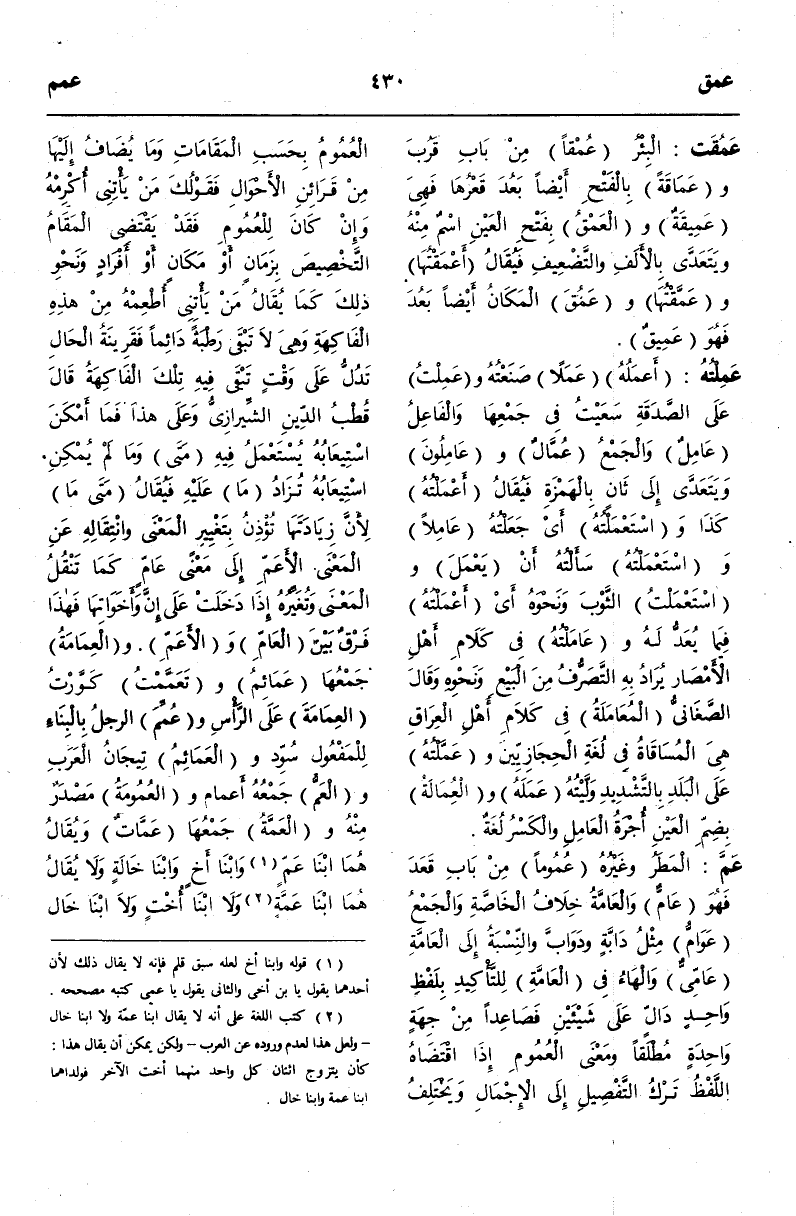 عمق
٤٣٠
عمم
عَمُقَت : الْبِئْرُ ( عُمْقاً ) مِنْ بَابِ قَرُبَ
و ( عَمَاقَةً ) بِالْفَتْحِ أَيْضاً بَعُدَ قَعْرُهَا فَهِيَ
( عَمِيقَةٌ ) و ( الْعَمْقُ ) بِفَتْحِ الْعَيْنِ اسْمٌ مِنْهُ
ويَتَعَدَّى بِالْأَلَفِ والتَّضْعِيفِ فَيُقَالُ (أَعْمَقْتُهَا)
و ( عَمَّقْتُهَا) و ( عَمُقَ ) الْمَكَانُ أَيْضاً بَعُدَ
فَهُوَ ( عَمِيقٌ ) .
عَمِلْتُهُ : ( أَعمَلُهُ ) ( عَمَلًا ) صَنَعْتُهُ و(عَمِلْتُ)
عَلَى الصَّدَقَةِ سَعَيْتُ فِى جَمْعِهَا وَالْفَاعِلُ
( عَامِلٌ ) وَالْجَمْعُ ( عُمَّالٌ ) و ( عَامِلُونَ )
وَيَتَعَدَّى إِلَى ثَانٍ بِالْهَمْزَةِ فَيُقَالُ ( أَعْمَلْتُهُ )
كَذَا وَ ( اسْتَعْمَلْتُهُ ) أَىْ جَعَلْتُهُ ( عَامِلاً )
وَ ( اسْتَعْمَلْتُهُ ) سَأَلْتُهُ أَنْ ( يَعْمَلَ ) و
( اسْتَعْمَلْتُ ) الثَّوْبَ وَنَحْوَهُ أَىْ ( أَعْمَلْتُهُ )
فِيمَا يُعَدُّ لَهُ و ( عَامَلْتُهُ ) فِى كَلَامِ أَهْلِ
الْأَمْصَارِ يُرَادُ بِهِ التَّصَرُّفُ مِنَ الْبَيْعِ وَنَحْوِهِ وَقَالَ
الصَّغَانىُّ ( الْمُعَامَلَةُ ) فِى كَلَامِ أَهْلِ الْعِرَاقِ
هِىَ الْمُسَاقَاةُ فِى لُغَةِ الْحِجَازِيِّينَ و ( عَمَّلْتُهُ )
عَلَى الْبَلَدِ بِالتَّشْدِيدِ وَلَّيْتُهُ ( عَمَلَهُ ) و( الْعُمَالَةُ )
بِضَمِّ الْعَيْنِ أُجْرَةُ الْعَامِلِ والْكَسْرُ لُغَةٌ .
عَمَّ : الْمَطَرُ وغَيْرُهُ ( عُمُوماً ) مِنْ بَابِ قَعَدَ
فَهُوَ ( عَامٌّ ) وَالْعَامَّةُ خِلَافُ الْخَاصَّةِ وَالْجَمْعُ
( عَوَامُّ ) مِثْلُ دَابَّةٍ ودَوَابَّ والنِّسْبَةُ إِلَى الْعَامَّةِ
( عَامِّىٌّ ) وَالْهَاءُ فِى ( الْعَامَّةِ ) لِلتَّأْكِيدِ بِلَفْظٍ
وَاحِدٍ دَالٍّ عَلَى شَيْئَيْنِ فَصَاعِداً مِنْ جِهَةٍ
وَاحِدَةٍ مُطْلَقاً ومَعْنَى الْعُمُومِ إِذَا اقْتَضَاهُ
اللَّفْظُ تَرْكُ التَّفْصِيلِ إِلَى الْإِجْمَالِ وَيَخْتَلِفُ
الْعُمُومُ بِحَسَبِ الْمَقَامَاتِ وَمَا يُضَافُ إِلَيْهَا
مِنْ قَرَائِنِ الْأَحْوَالِ فَقَوْلُكَ مَنْ يَأْتِنِى أُكْرِمْهُ
وَإِنْ كَانَ لِلْعُمُومِ فَقَدْ يَقْتَضِى الْمَقَامُ
التَّخْصِيصَ بِزَمَانٍ أَوْ مَكَانٍ أَوْ أَفْرَادٍ وَنَحْوِ
ذلِكَ كَمَا يُقَالُ مَنْ يَأْتِنِى أُطْعِمْهُ مِنْ هذِهِ
الْفَاكِهَةِ وَهِىَ لاَ تَبْقَى رَطْبَةً دَائِماً فَقَرِينَةُ الْحَالِ
تَدُلُّ عَلَى وَقْتٍ تَبْقَى فِيهِ تِلْكَ الْفَاكِهَةُ قَالَ
قُطْبُ الدِّينِ الشِّيرَازِىُّ وَعَلَى هذَا فَمَا أَمْكَنَ
اسْتِيعَابُهُ يُسْتَعْمَلُ فِيهِ ( مَتَى ) وَمَا لَمْ يُمْكِنِ
اسْتِيعَابُهُ تُزَادُ ( مَا ) عَلَيْهِ فَيُقَالُ ( مَتَى مَا )
لِأَنَّ زِيَادَتَهَا تُؤْذِنُ بِتَغْيِيرِ الْمَعْنَى وانْتِقَالِهِ عَنِ
الْمَعْنَى الْأَعَمِّ إِلَى مَعْنًى عَامٍّ كَمَا تَنْقُلُ
الْمَعْنَى وَتُغَيِّرُهُ إِذَا دَخَلَتْ عَلَى إِنَّ وأَخَوَاتِهَا فَهٰذَا
فَرْقٌ بَيْنَ ( الْعَامِّ ) وَ ( الْأَعَمِّ ) . و( الْعِمَامَةُ )
جَمْعُهَا ( عَمَائِمُ ) و ( تَعَمَّمْتُ ) كَوَّرْتُ
( العِمَامَةَ ) عَلَى الرَّأْسِ و ( عُمِّمَ ) الرجلُ بِالْبِنَاءِ
لِلْمَفْعُولِ سُوِّد و ( الْعَمَائِمُ ) تِيجَانُ الْعَرَبِ
و ( الْعَمُّ ) جَمْعُهُ أعمام و ( الْعُمُومَةُ ) مَصْدَرٌ
مِنْهُ و ( الْعَمَّةُ ) جَمْعُهَا ( عَمَّاتٌ ) وَيُقَالُ
هُمَا ابْنَا عَمٍّ (١) وَابْنَا أَخٍ وَابْنَا خَالَةٍ وَلَا يُقَالُ
هُمَا ابْنَا عَمَّةٍ (٢) وَلَا ابْنَا أُخْتٍ وَلاَ ابْنَا خَال
( ١ ) قوله وابنا أخ لعله سبق قلم فإنه لا يقال ذلك لأن
أحدهما يقول يا بن أخى والثانى يقول يا عمى كتبه مصححه .
( ٢ ) كتب اللغة على أنه لا يقال ابنا عمّة ولا ابنا خال
– ولعل هذا لعدم وروده عن العرب – ولكن يمكن أن يقال هذا :
كأن يتزوج اثنان كل واحد منهما أخت الآخر فولداهما
ابنا عمة وابنا خال .